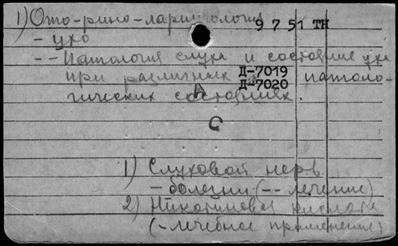 1) Ото-рино-ларингология 9 7 51 ТН
- ухо
-- Патология слуха и состояние уха
при различных патоло-
гических состояниях.
Д-7019
Д-7020
А
С
1) Слуховой нерв
- болезни (-- лечение)
2) Никотиновая кислота
(- лечебное применение)